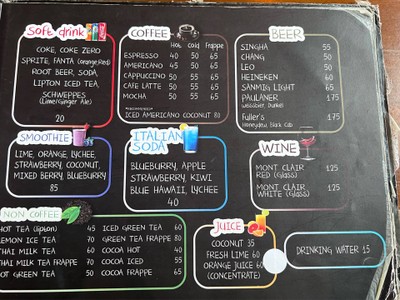 Soft drink
COKE, COKE ZERO
SPRITE, FANTA (orange,Red)
ROOT BEER, SODA,
LIPTON ICED TEA
SCHWEPPES
(Lime/Ginger Ale)
20
COFFEE
Hot Cold Frappe
ESPRESSO 40 50 65
AMERICANO 45 50 65
CAPPUCCINO 50 55 65
CAFE LATTE 50 55 65
MOCHA 50 55 65
ICED AMERICANO COCONUT 80
BEER
SINGHA 55
CHANG 50
LEO 50
HEINEKEN 60
SANMIG LIGHT 65
PAULANER 175
Weissbier, Dunkel
Fuller's 175
Honeydew, Black Cab
SMOOTHIE
LIME, ORANGE, LYCHEE,
STRAWBERRY, COCONUT,
MIXED BERRY, BLUEBURRY
85
ITALIAN
SODA
BLUEBURRY, APPLE
STRAWBERRY, KIWI
BLUE HAWAII, LYCHEE
40
WINE
MONT CLAIR 125
RED (Glass)
MONT CLAIR 125
WHITE (Glass)
NON COFFEE
HOT TEA (lipton) 45
LEMON ICE TEA 70
THAI MILK TEA 60
THAI MILK TEA FRAPPE 70
HOT GREEN TEA 50
ICED GREEN TEA 60
GREEN TEA FRAPPE 80
COCOA HOT 40
COCOA ICED 55
COCOA FRAPPE 65
JUICE
COCONUT 35
FRESH LIME 60
ORANGE JUICE 60
(CONCENTRATE)
DRINKING WATER 15